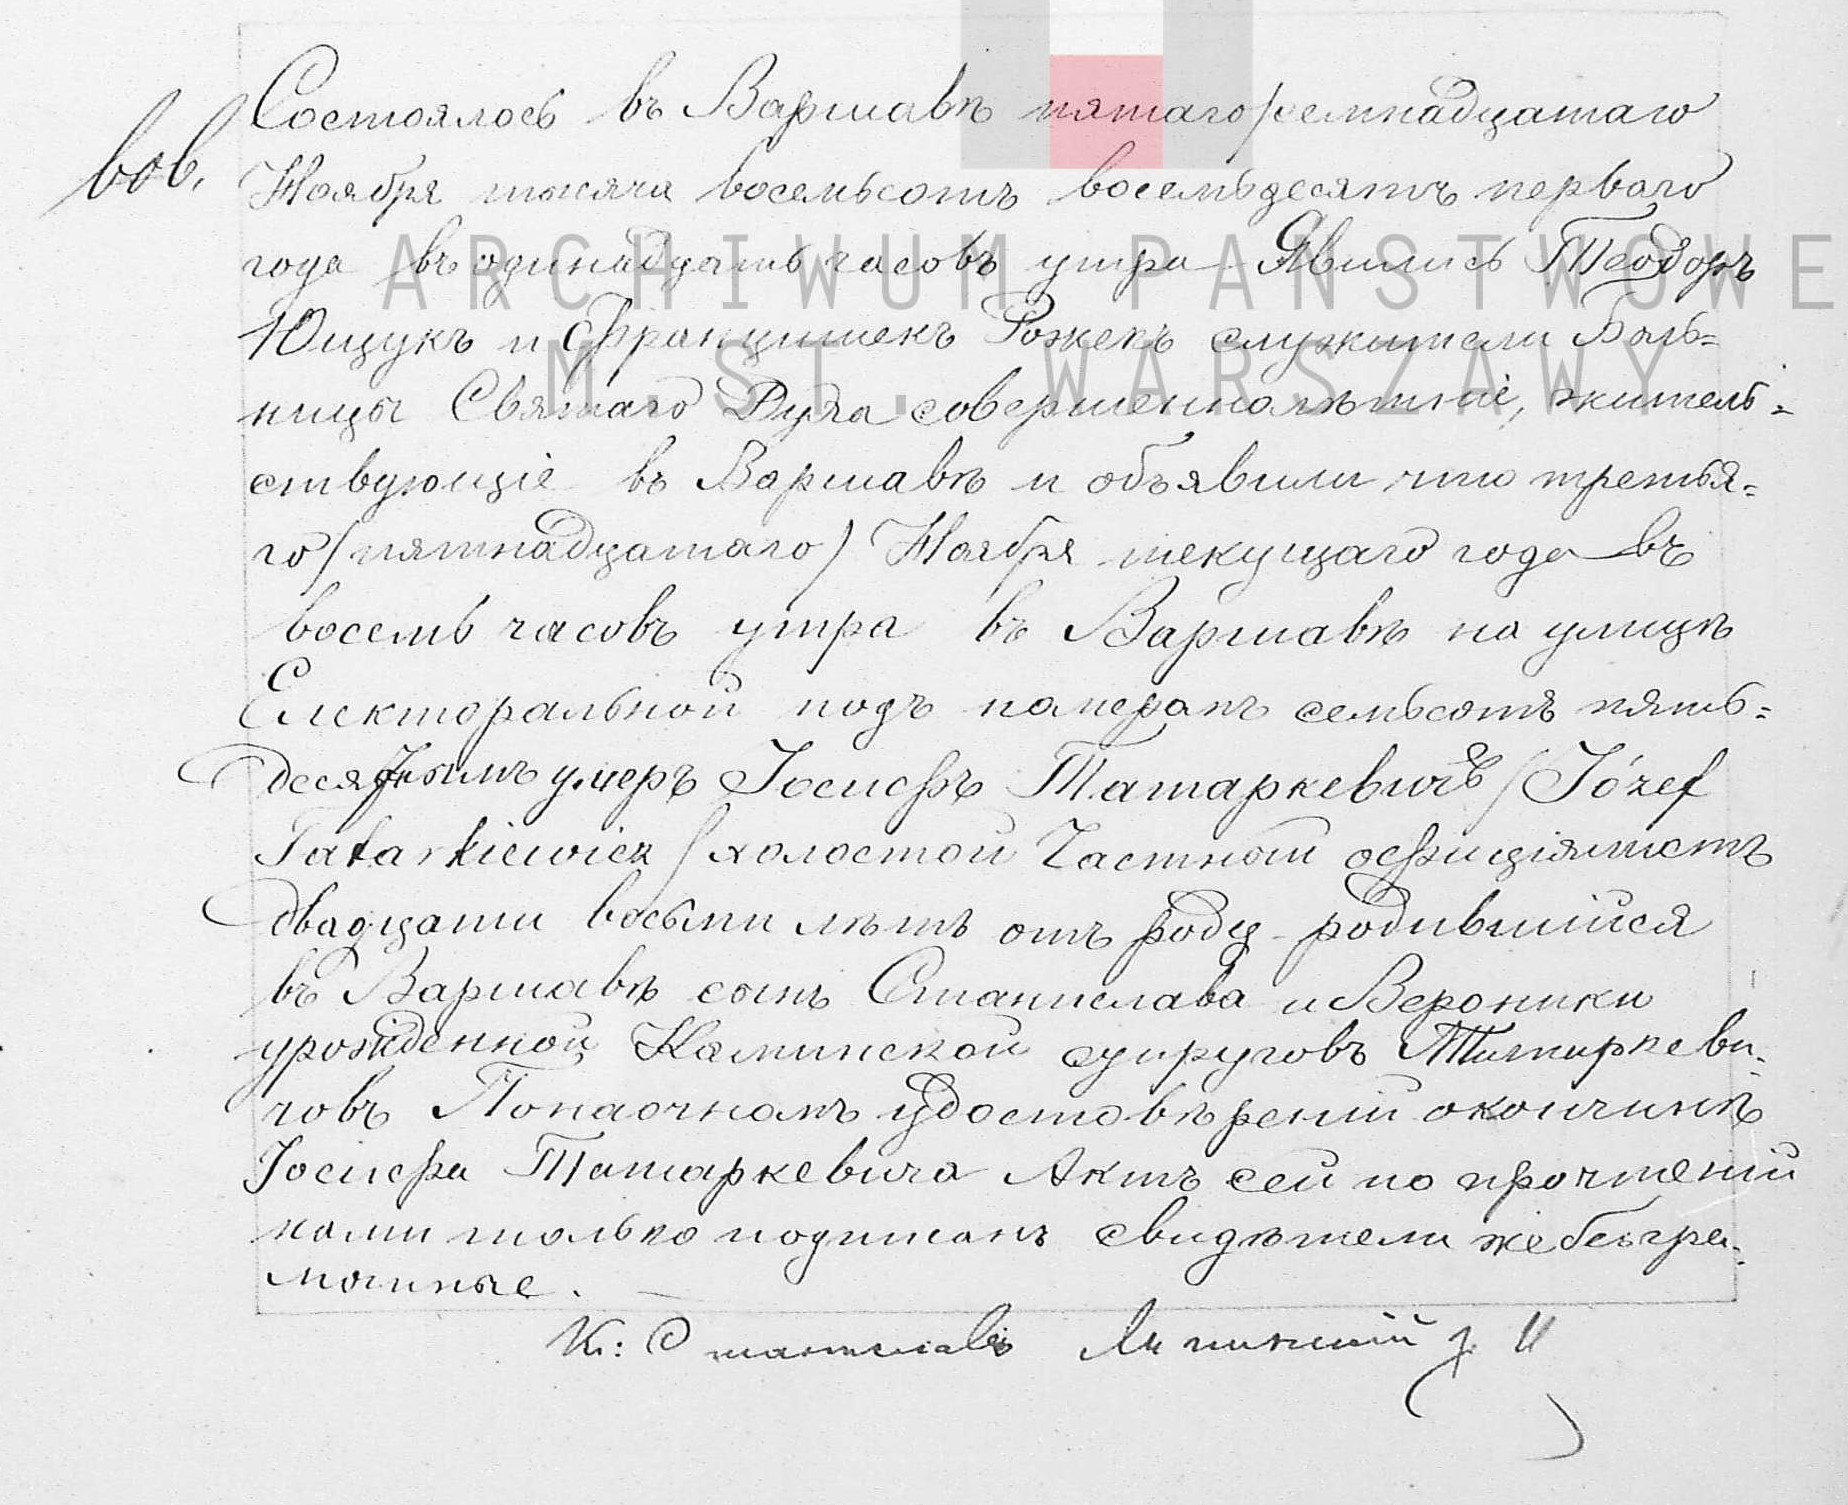 Состоялось въ Варшавѣ пятаго/семнадцатаго
Ноября тысяча восемьсотъ восемьдесятъ перваго
года въ одинадцать часовъ утра Явились Теодоръ
Ющукъ и Францишекъ Рожекъ служители Боль=
ницы Святаго Духа совершеннолѣтніе, житель=
ствующіе въ Варшавѣ и объявили что третья=
го/пятнадцатаго/ Ноября текущаго года въ
восемь часовъ утра въ Варшавѣ на улицѣ
Електоральной подъ номеромъ семьсотъ пять=
десятымъ умеръ Іосифъ Татаркевичъ /Józef
Tatarkiewicz/ холостой Частный оффиціялистъ
двадцати восьми лѣтъ отъ роду родившійся
въ Варшавѣ сынъ Станислава и Вероники
урожденной Каминской супруговъ Татаркеви=
човъ По наочномъ удостовѣреніи о кончинѣ
Іосифа Татаркевича Актъ сей по прочтеніи
нами только подписанъ свидѣтели же безгра=
мотные.
К: Станиславъ
ARCHIWUM PAŃSTWOWE
M. ST. WARSZAWY